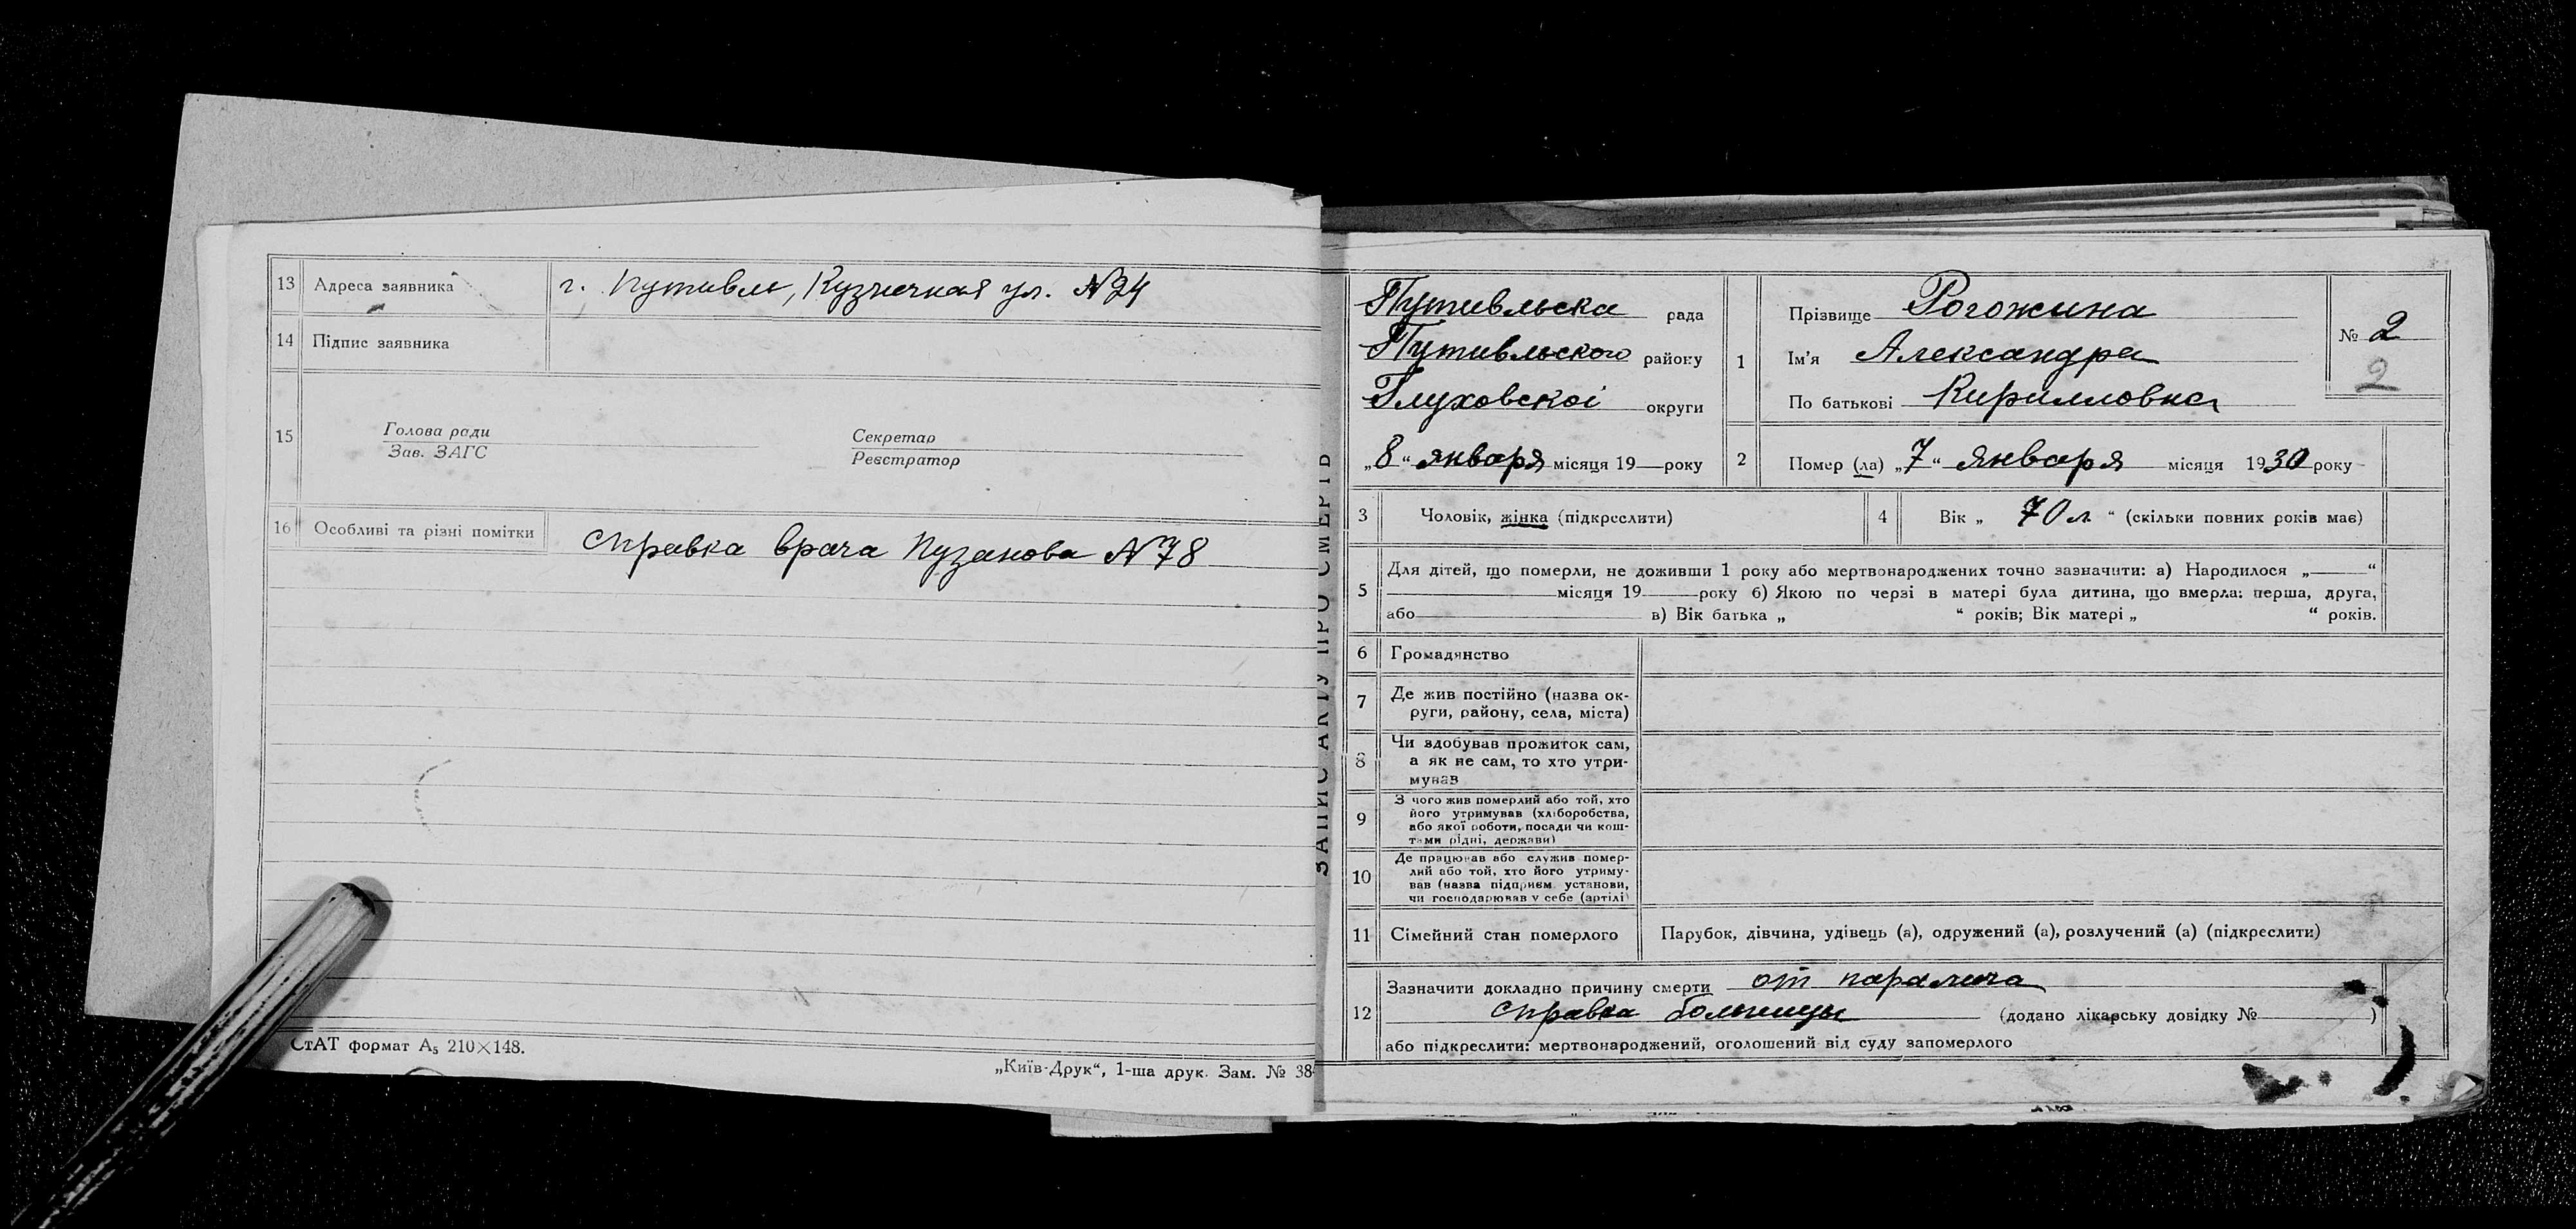 13 Адреса заявника г. Путивль, Кузнечная ул. N 24
14 Підпис заявника
15 Голова ради Секретар
Зав. ЗАГС Реєстратор
16 Особливі та різні помітки справка врача Пузанова N 78
СтАТ формат А5 210×148.
„Київ-Друк“, 1-ша друк. Зам. № 38
ЗАПИС АКТУ ПРО СМЕРТЬ
Путивльска рада
Путивльского району
Глуховскоі округи
„8“ января місяця 19 року
1 Прізвище Рогожина
Ім'я Александра
По батькові Кирилловна
№ 2
2
2 Помер (ла) „7“ января місяця 1930 року
3 Чоловік, жінка (підкреслити)
4 Вік „ 70 л. “ (скільки повних років має)
5 Для дітей, що померли, не доживши 1 року або мертвонароджених точно зазначити: а) Народилося „ “
місяця 19 року б) Якою по черзі в матері була дитина, що вмерла: перша, друга,
або в) Вік батька „ “ років; Вік матері „ “ років.
6 Громадянство
7 Де жив постійно (назва ок-
руги, району, села, міста)
8 Чи здобував прожиток сам,
а як не сам, то хто утри-
мував
9 З чого жив померлий або той, хто
його утримував (хліборобства,
або якої роботи, посади чи кош-
тами рідні, держави)
10 Де працював або служив помер-
лий або той, хто його утриму-
вав (назва підприєм. установи,
чи господарював у себе (артілі)
11 Сімейний стан померлого Парубок, дівчина, удівець (а), одружений (а), розлучений (а) (підкреслити)
12 Зазначити докладно причину смерти от паралича
справка больницы (додано лікарську довідку № )
або підкреслити: мертвонароджений, оголошений від суду запомерлого